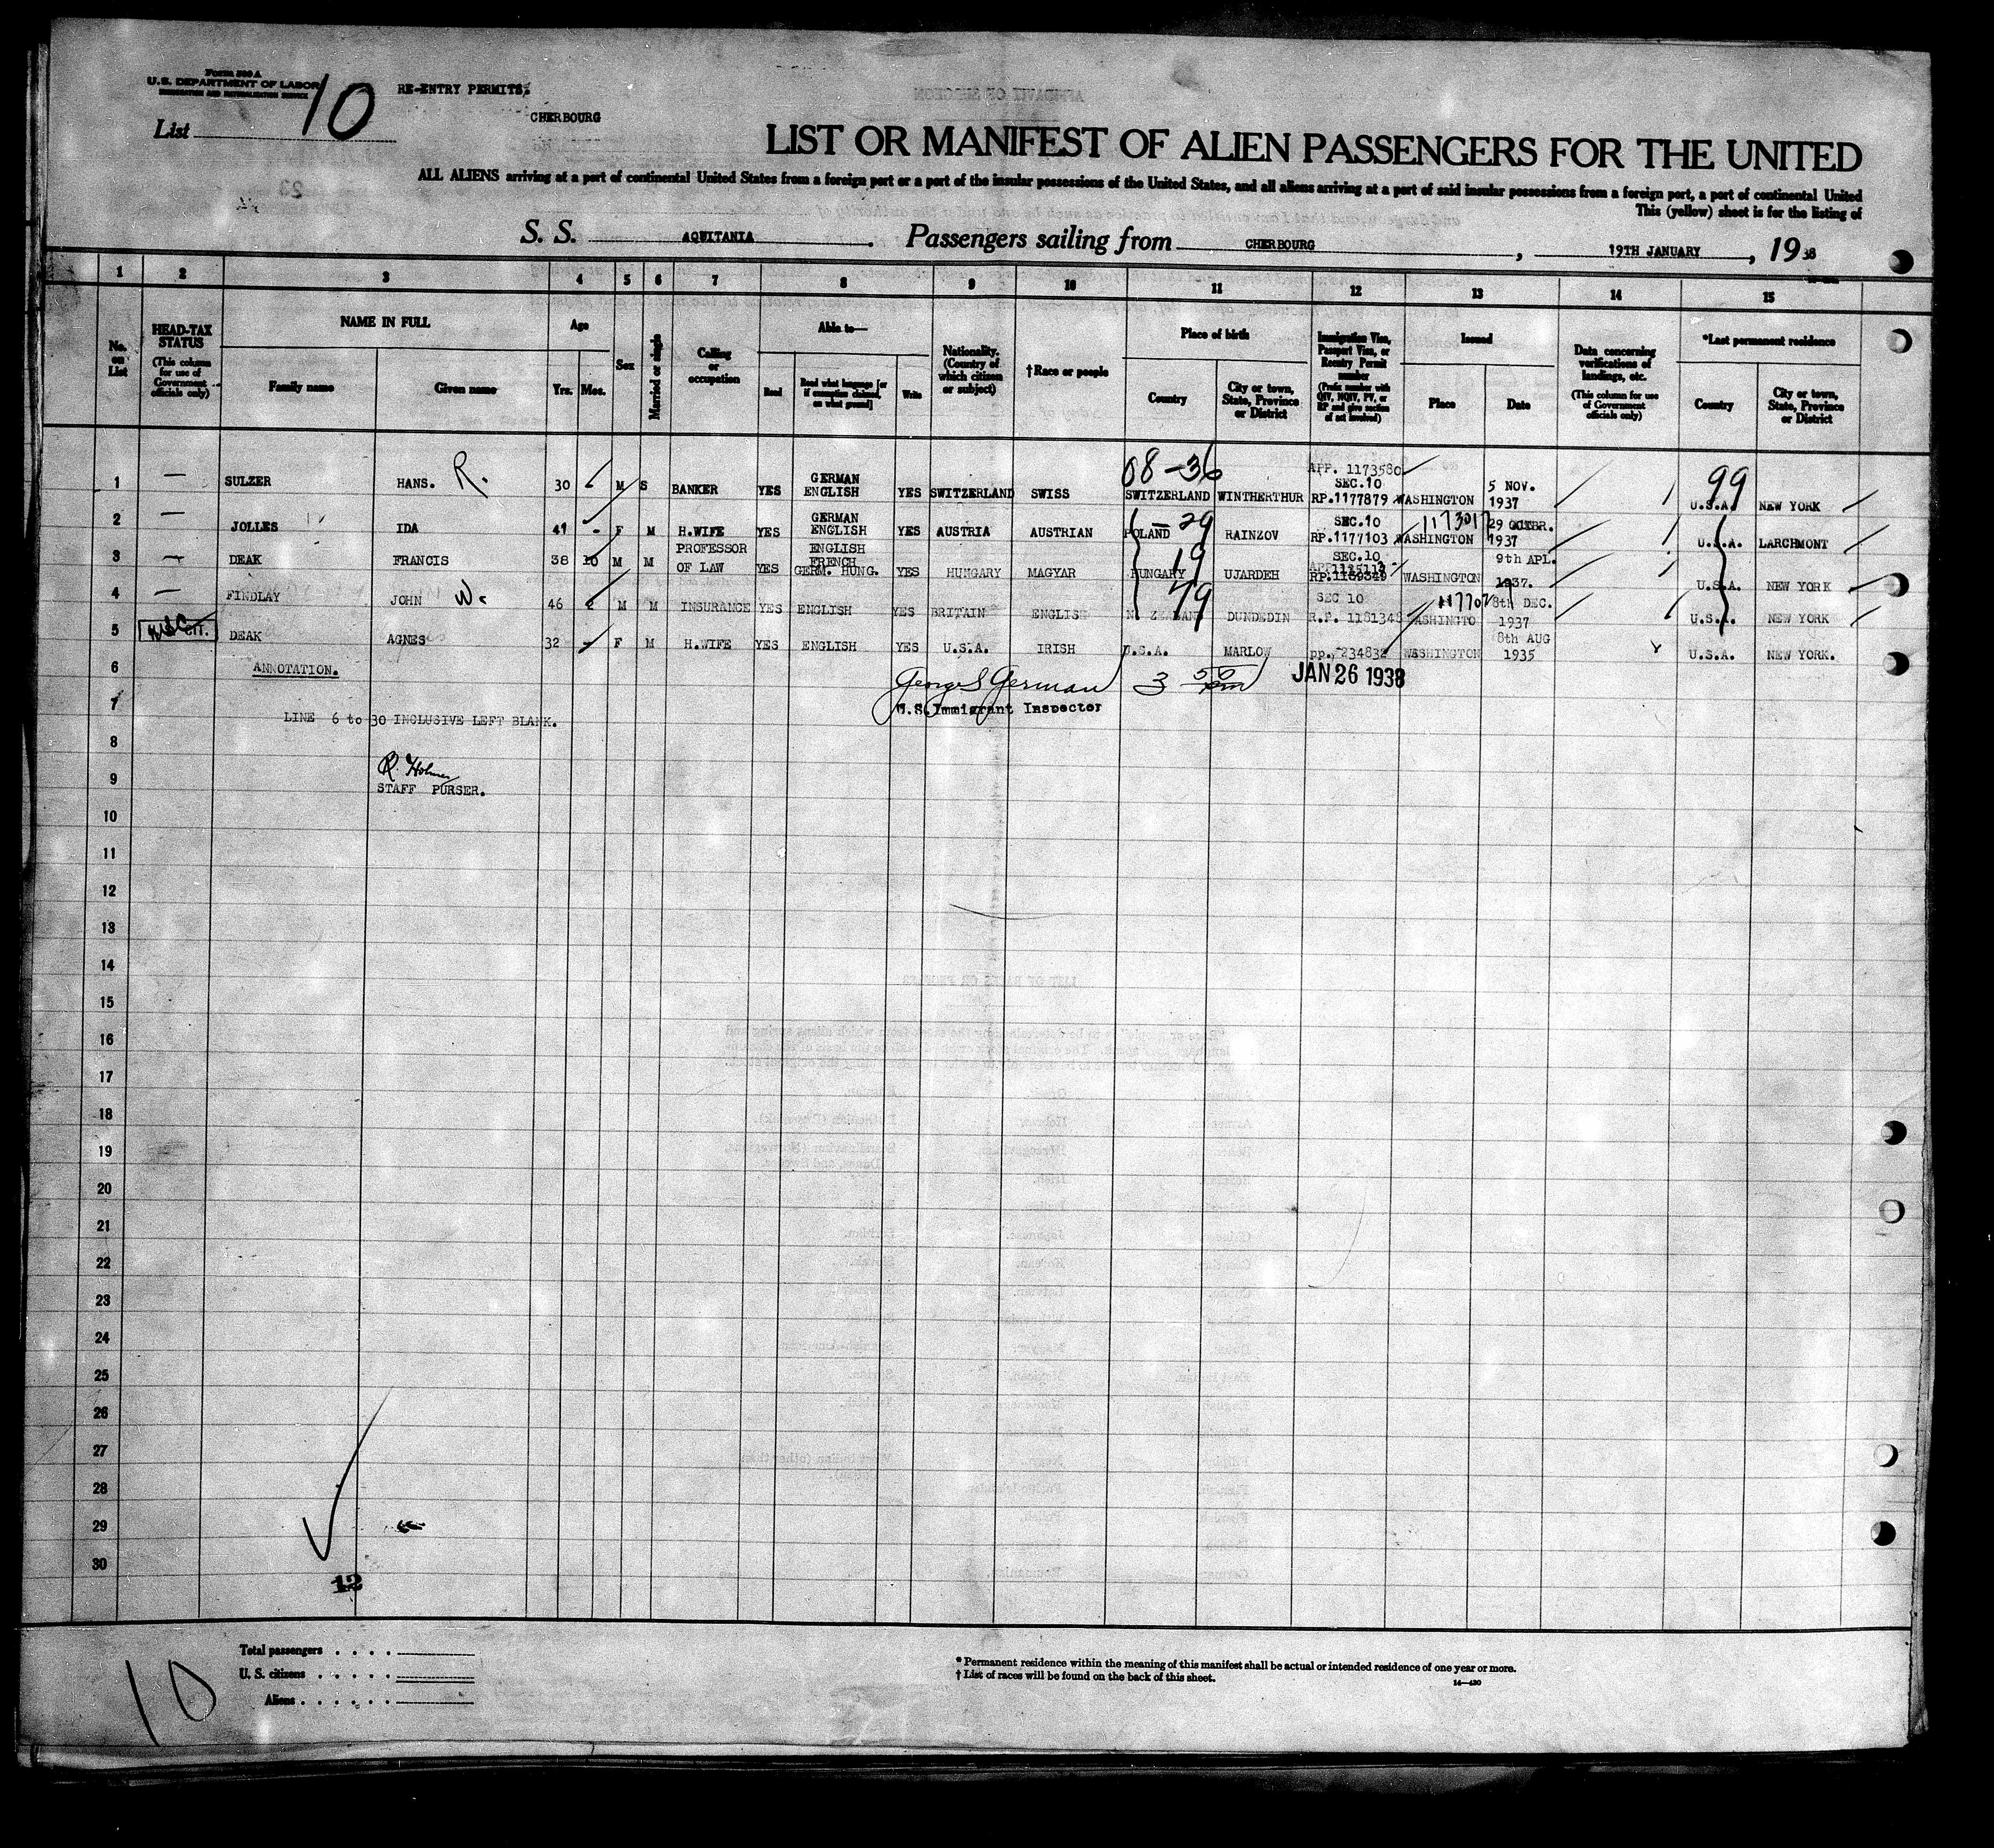 Form 500 A
U.S. DEPARTMENT OF LABOR
IMMIGRATION AND NATURALIZATION SERVICE
List 10
RE-ENTRY PERMITS.
CHERBOURG
LIST OR MANIFEST OF ALIEN PASSENGERS FOR THE UNITED
ALL ALIENS arriving at a port of continental United States from a foreign port or a port of the insular possessions of the United States, and all aliens arriving at a port of said insular possessions from a foreign port, a port of continental United
This (yellow) sheet is for the listing of
S. S. AQUITANIA. Passengers sailing from CHERBOURG, 19TH JANUARY, 1938
1 2 3 4 5 6 7 8 9 10 11 12 13 14 15
No. on List
HEAD-TAX STATUS (This column for use of Government officials only)
NAME IN FULL
Family name
Given name
Age
Yrs. Mos.
Sex
Married or single
Calling or occupation
Able to—
Read
Read what language [or if exemption claimed, on what ground]
Write
Nationality. (Country of which citizen or subject)
† Race or people
Place of birth
Country
City or town, State, Province or District
Immigration Visa, Passport Visa, or Reentry Permit number
(Prefix number with QIV, NQIV, PV, or RP and give section of act involved)
Issued
Place
Date
Data concerning verifications of landings, etc.
(This column for use of Government officials only)
*Last permanent residence
Country
City or town, State, Province or District
1 — SULZER HANS. R. 30 M S BANKER YES GERMAN ENGLISH YES SWITZERLAND SWISS 08-36 SWITZERLAND WINTHERTHUR APP. 1173580 SEC.10 RP.1177879 WASHINGTON 5 NOV. 1937 99 U.S.A. NEW YORK
2 — JOLLES IDA 41 - F M H.WIFE YES GERMAN ENGLISH YES AUSTRIA AUSTRIAN POLAND 29 RAINZOV SEC.10 RP.1177103 WASHINGTON 117301 29 1937 U.S.A. LARCHMONT
3 — DEAK FRANCIS 38 10 M M PROFESSOR OF LAW YES ENGLISH FRENCH GERM. HUNG. YES HUNGARY MAGYAR HUNGARY 19 UJARDEH SEC.10 RP.1169349 WASHINGTON 9th APL. 1937. U.S.A. NEW YORK
4 — FINDLAY JOHN W. 46 2 M M INSURANCE YES ENGLISH YES BRITAIN ENGLISH 79 DUNDEDIN SEC 10 R.P. 1181348 WASHINGTO 8th DEC. 1937 U.S.A. NEW YORK
5 CIT. DEAK AGNES 32 - F M H.WIFE YES ENGLISH YES U.S.A. IRISH U.S.A. MARLOW pp. 234832 WASHINGTON 8th AUG 1935 U.S.A. NEW YORK.
6 ANNOTATION. George S German 3 50 pm JAN 26 1938
7 LINE 6 to 30 INCLUSIVE LEFT BLANK. U.S. Immigrant Inspector
8
R. Holmes
9 STAFF PURSER.
10
11
12
13
14
15
16
17
18
19
20
21
22
23
24
25
26
27
28
29
30
12
Total passengers
U. S. citizens
Aliens
10
* Permanent residence within the meaning of this manifest shall be actual or intended residence of one year or more.
† List of races will be found on the back of this sheet.
14—430